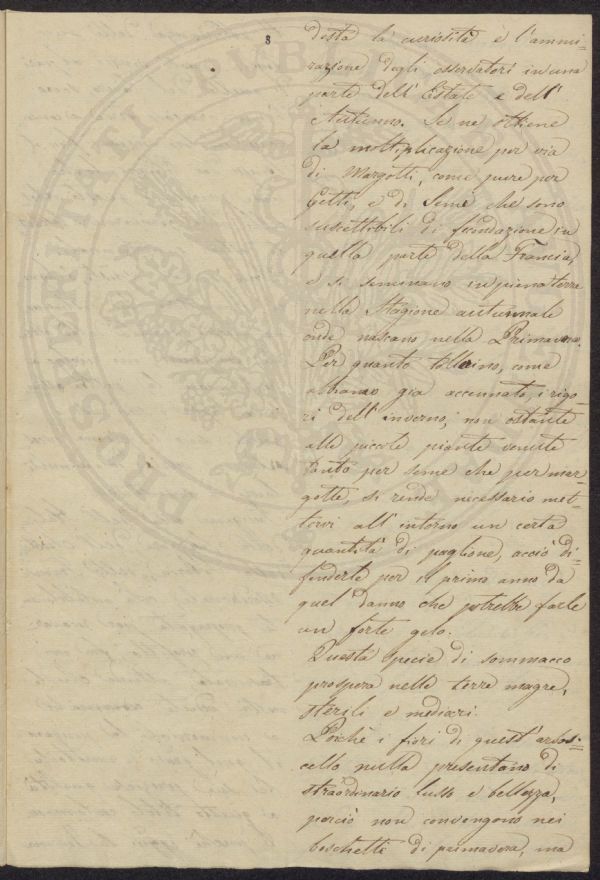 8
desta la curiosità e l'ammi-
razione degli osservatori in una
parte dell'Estate e dell'
Autunno. Se ne ottiene
la moltiplicazione per via
di Margotti, come pure per
Getti, e di Semi che sono
suscettibili di fecondazione in
quella parte della Francia,
e si seminano in piena terra
nella Stagione autunnale
onde nascano nella Primavera.
Per quanto tollerino, come
abbiamo già accennato, i rigo-
ri dell'inverno, non ostante
alle piccole piante venute
tanto per seme che per mar-
gotte, si rende necessario met-
tervi all'intorno un certa
quantità di paglione, acciò di-
fenderle per il primo anno da
quel danno che potrebbe farle
un forte gelo.
Questa specie di sommacco
prospera nelle terre magre,
sterili e mediocri.
Poichè i fiori di quest'arbos-
cello nulla presentano di
straordinario lusso e bellezza,
perciò non convengono nei
boschetti di primavera, ma
PROSPERITATI PUBLICAE